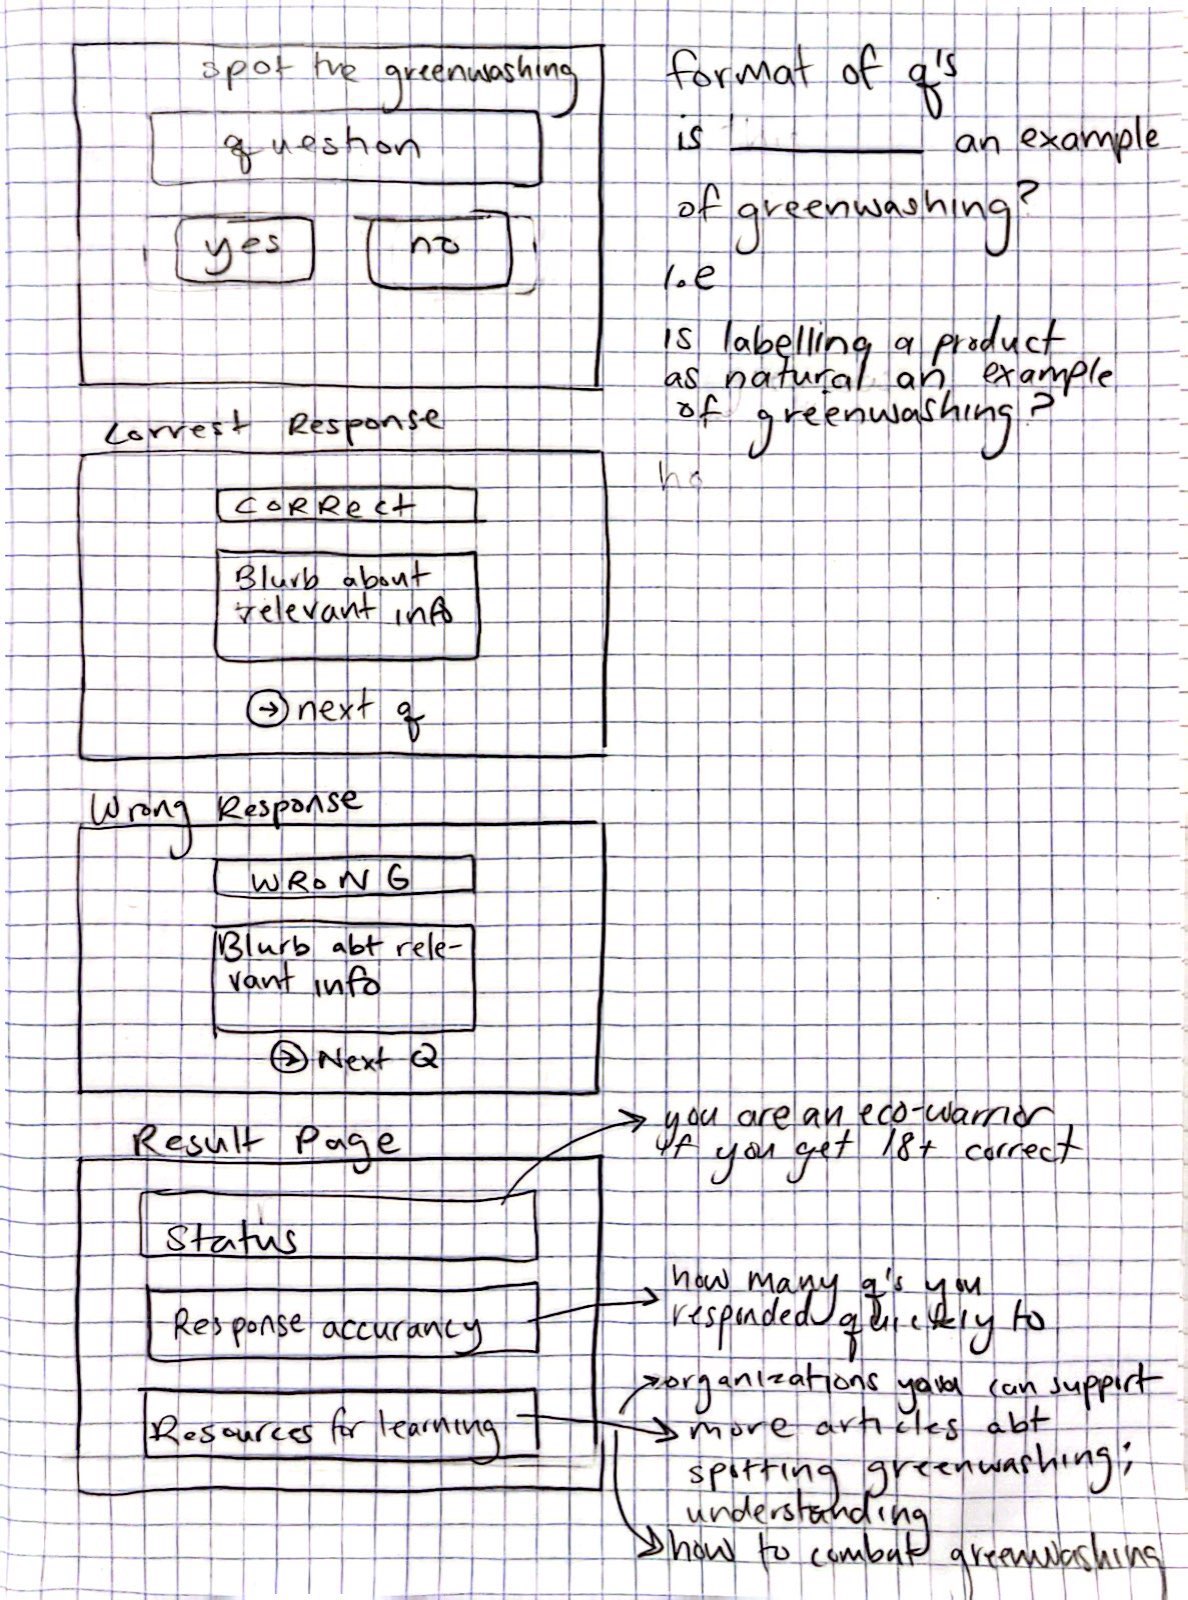 spot the greenwashing
question
yes
no
format of q's
is ________ an example
of greenwashing?
i.e
is labelling a product
as natural an example
of greenwashing?
Correst Response
CORRect
Blurb about
relevant info
→ next q
Wrong Response
WRONG
Blurb abt rele-
vant info
→ Next Q
Result Page
Status
you are an eco-warrior
if you get 18+ correct
Response accurancy
how many q's you
responded quickly to
Resources for learning
organizations you can support
more articles abt
spotting greenwashing;
understanding
how to combat greenwashing